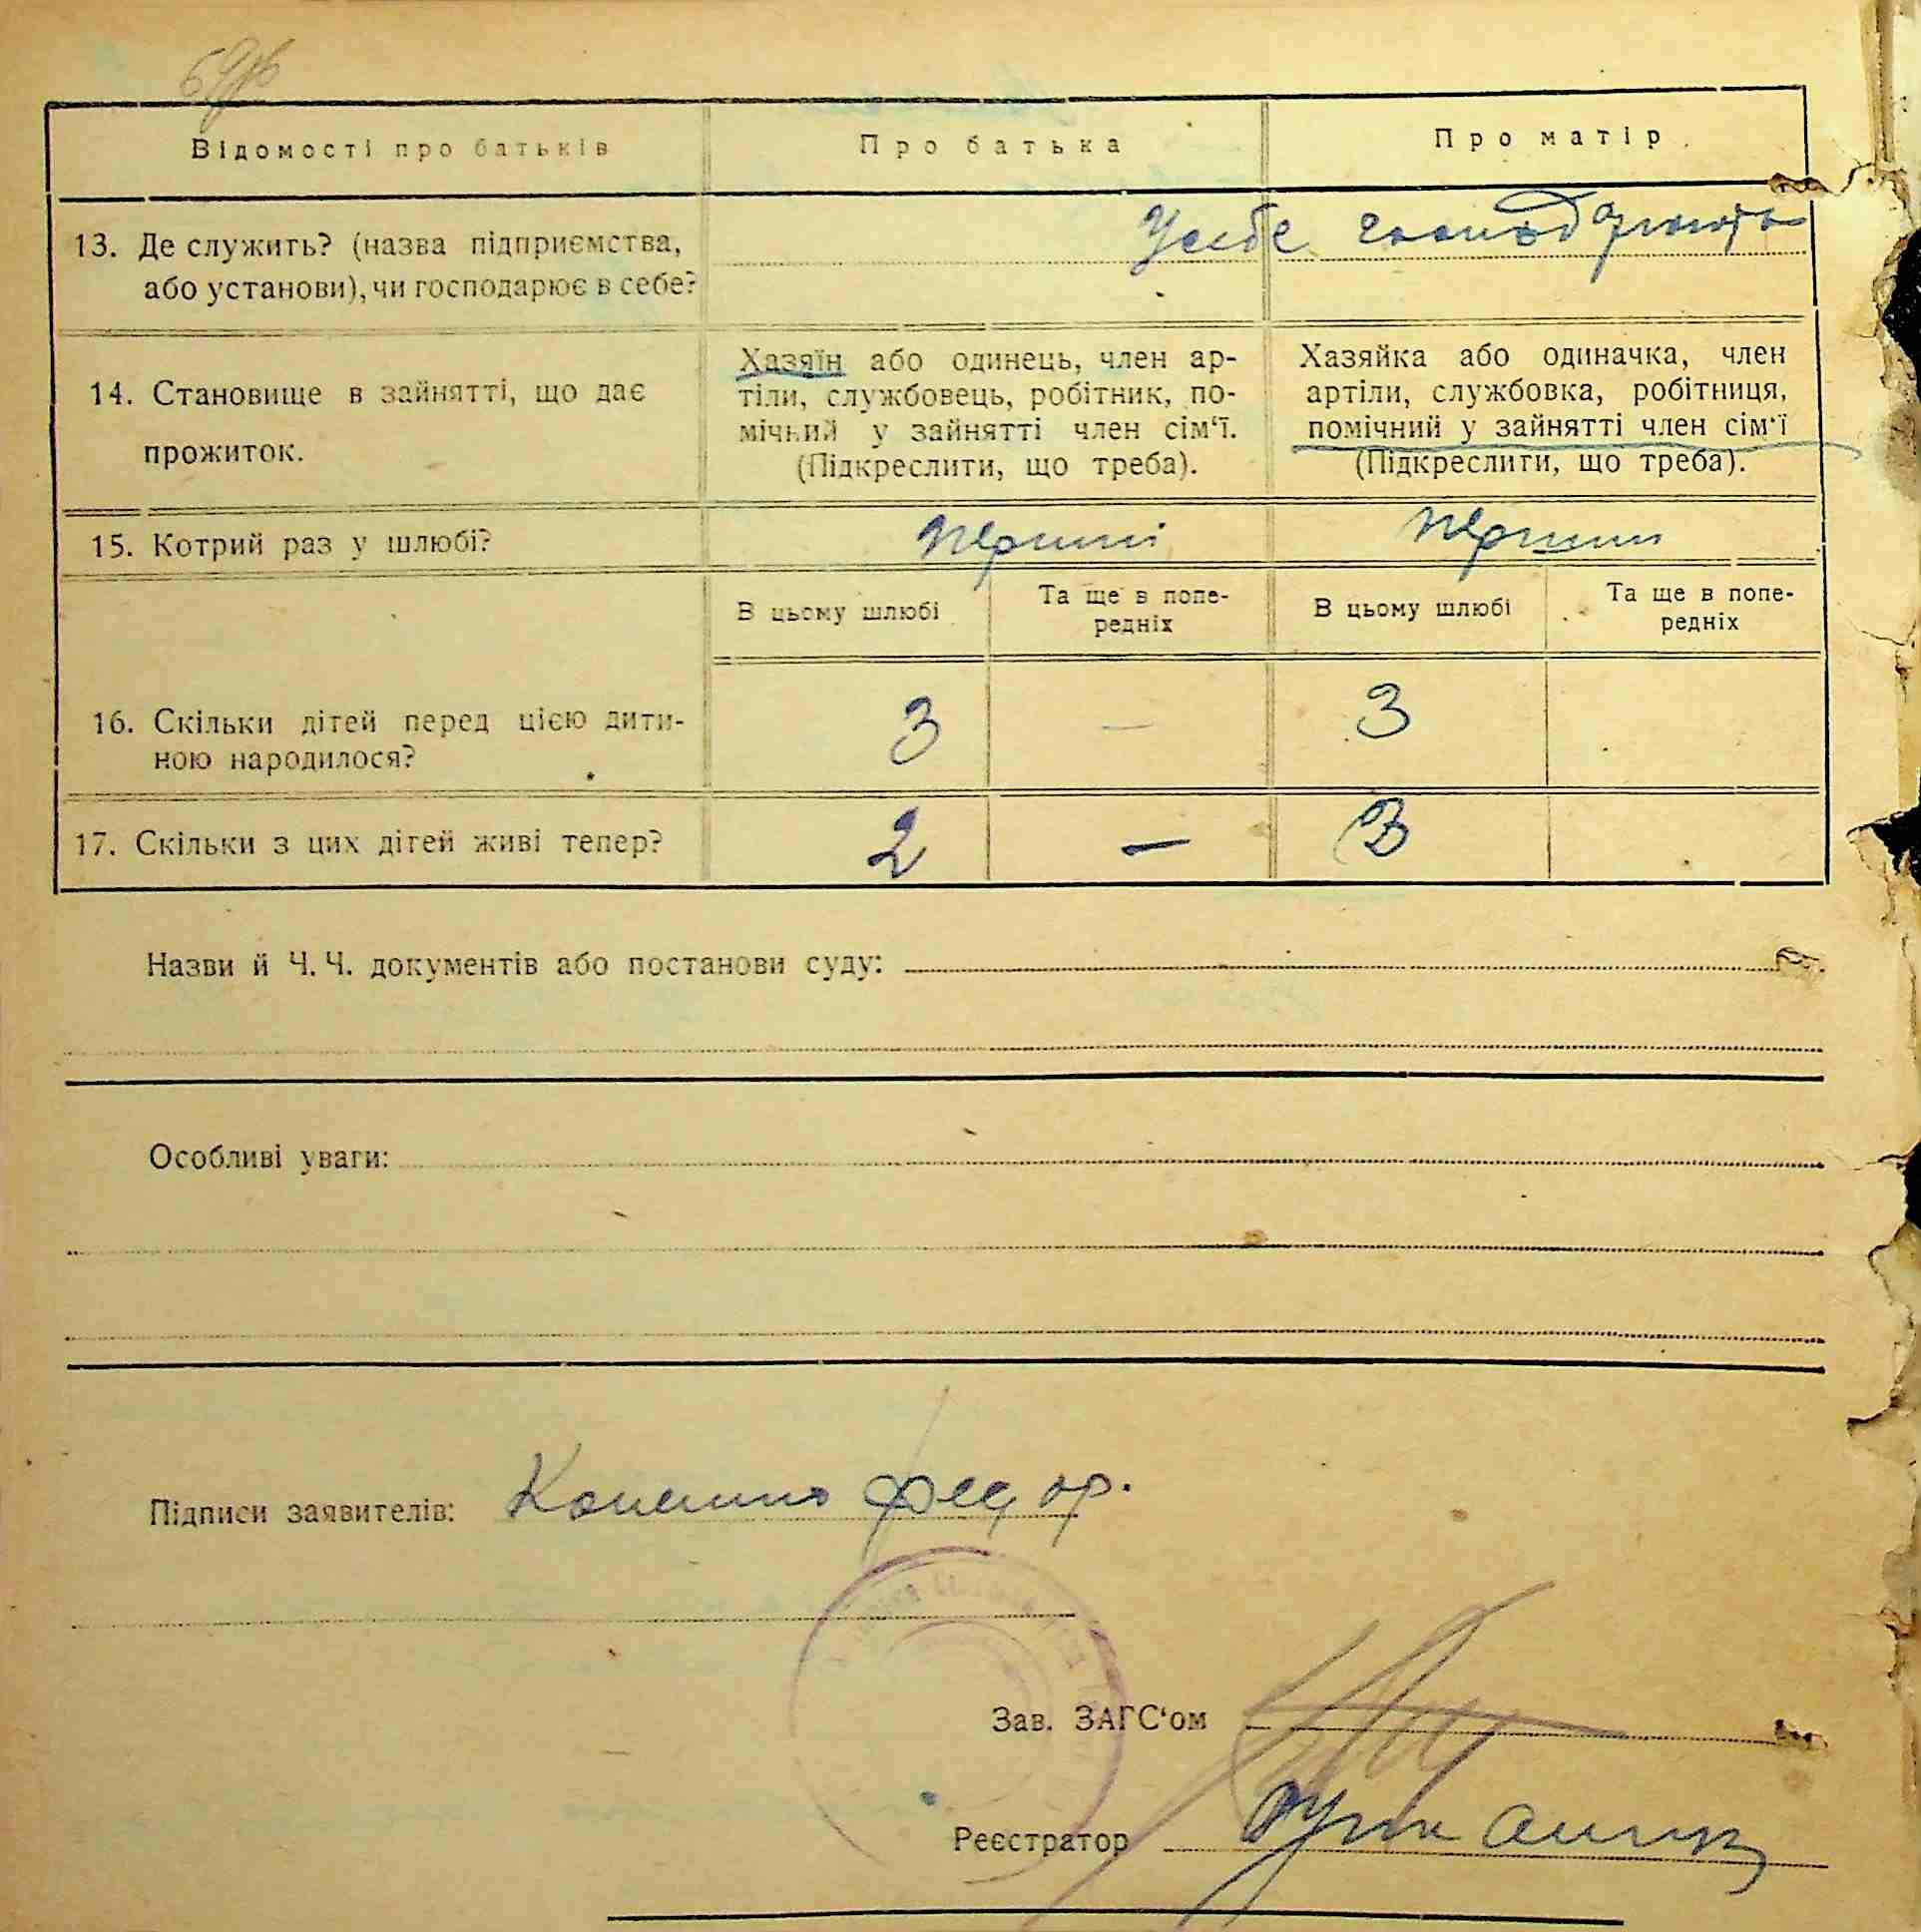 Відомості про батьків
Про батька
Про матір
13. Де служить? (назва підприємства,
або установи), чи господарює в себе?
У себе господарюють
14. Становище в зайнятті, що дає
прожиток.
Хазяїн або одинець, член ар-
тіли, службовець, робітник, по-
мічний у зайнятті член сім‘ї.
(Підкреслити, що треба).
Хазяйка або одиначка, член
артіли, службовка, робітниця,
помічний у зайнятті член сім‘ї
(Підкреслити, що треба).
15. Котрий раз у шлюбі?
В цьому шлюбі
Та ще в попе-
редніх
В цьому шлюбі
Та ще в попе-
редніх
16. Скільки дітей перед цією дити-
ною народилося?
3 — 3
17. Скільки з цих дітей живі тепер?
2 —
Назви й Ч. Ч. документів або постанови суду:
Особливі уваги:
Підписи заявителів: Федор.
Зав. ЗАГС‘ом
Реєстратор